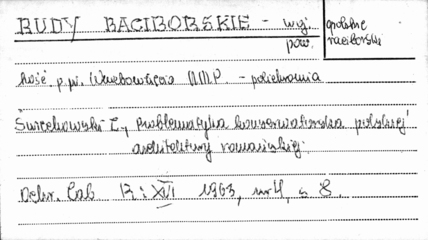 RUDY RACIBORSKIE - woj. opolskie
pow. raciborski
kość. p.w. Wniebowzięcia NMP. - polichromia
Świechowski Z., Problematyka konserwatorska polskiej
architektury romańskiej.
Ochr. Zab R: XVI 1963, nr 4, s 8.